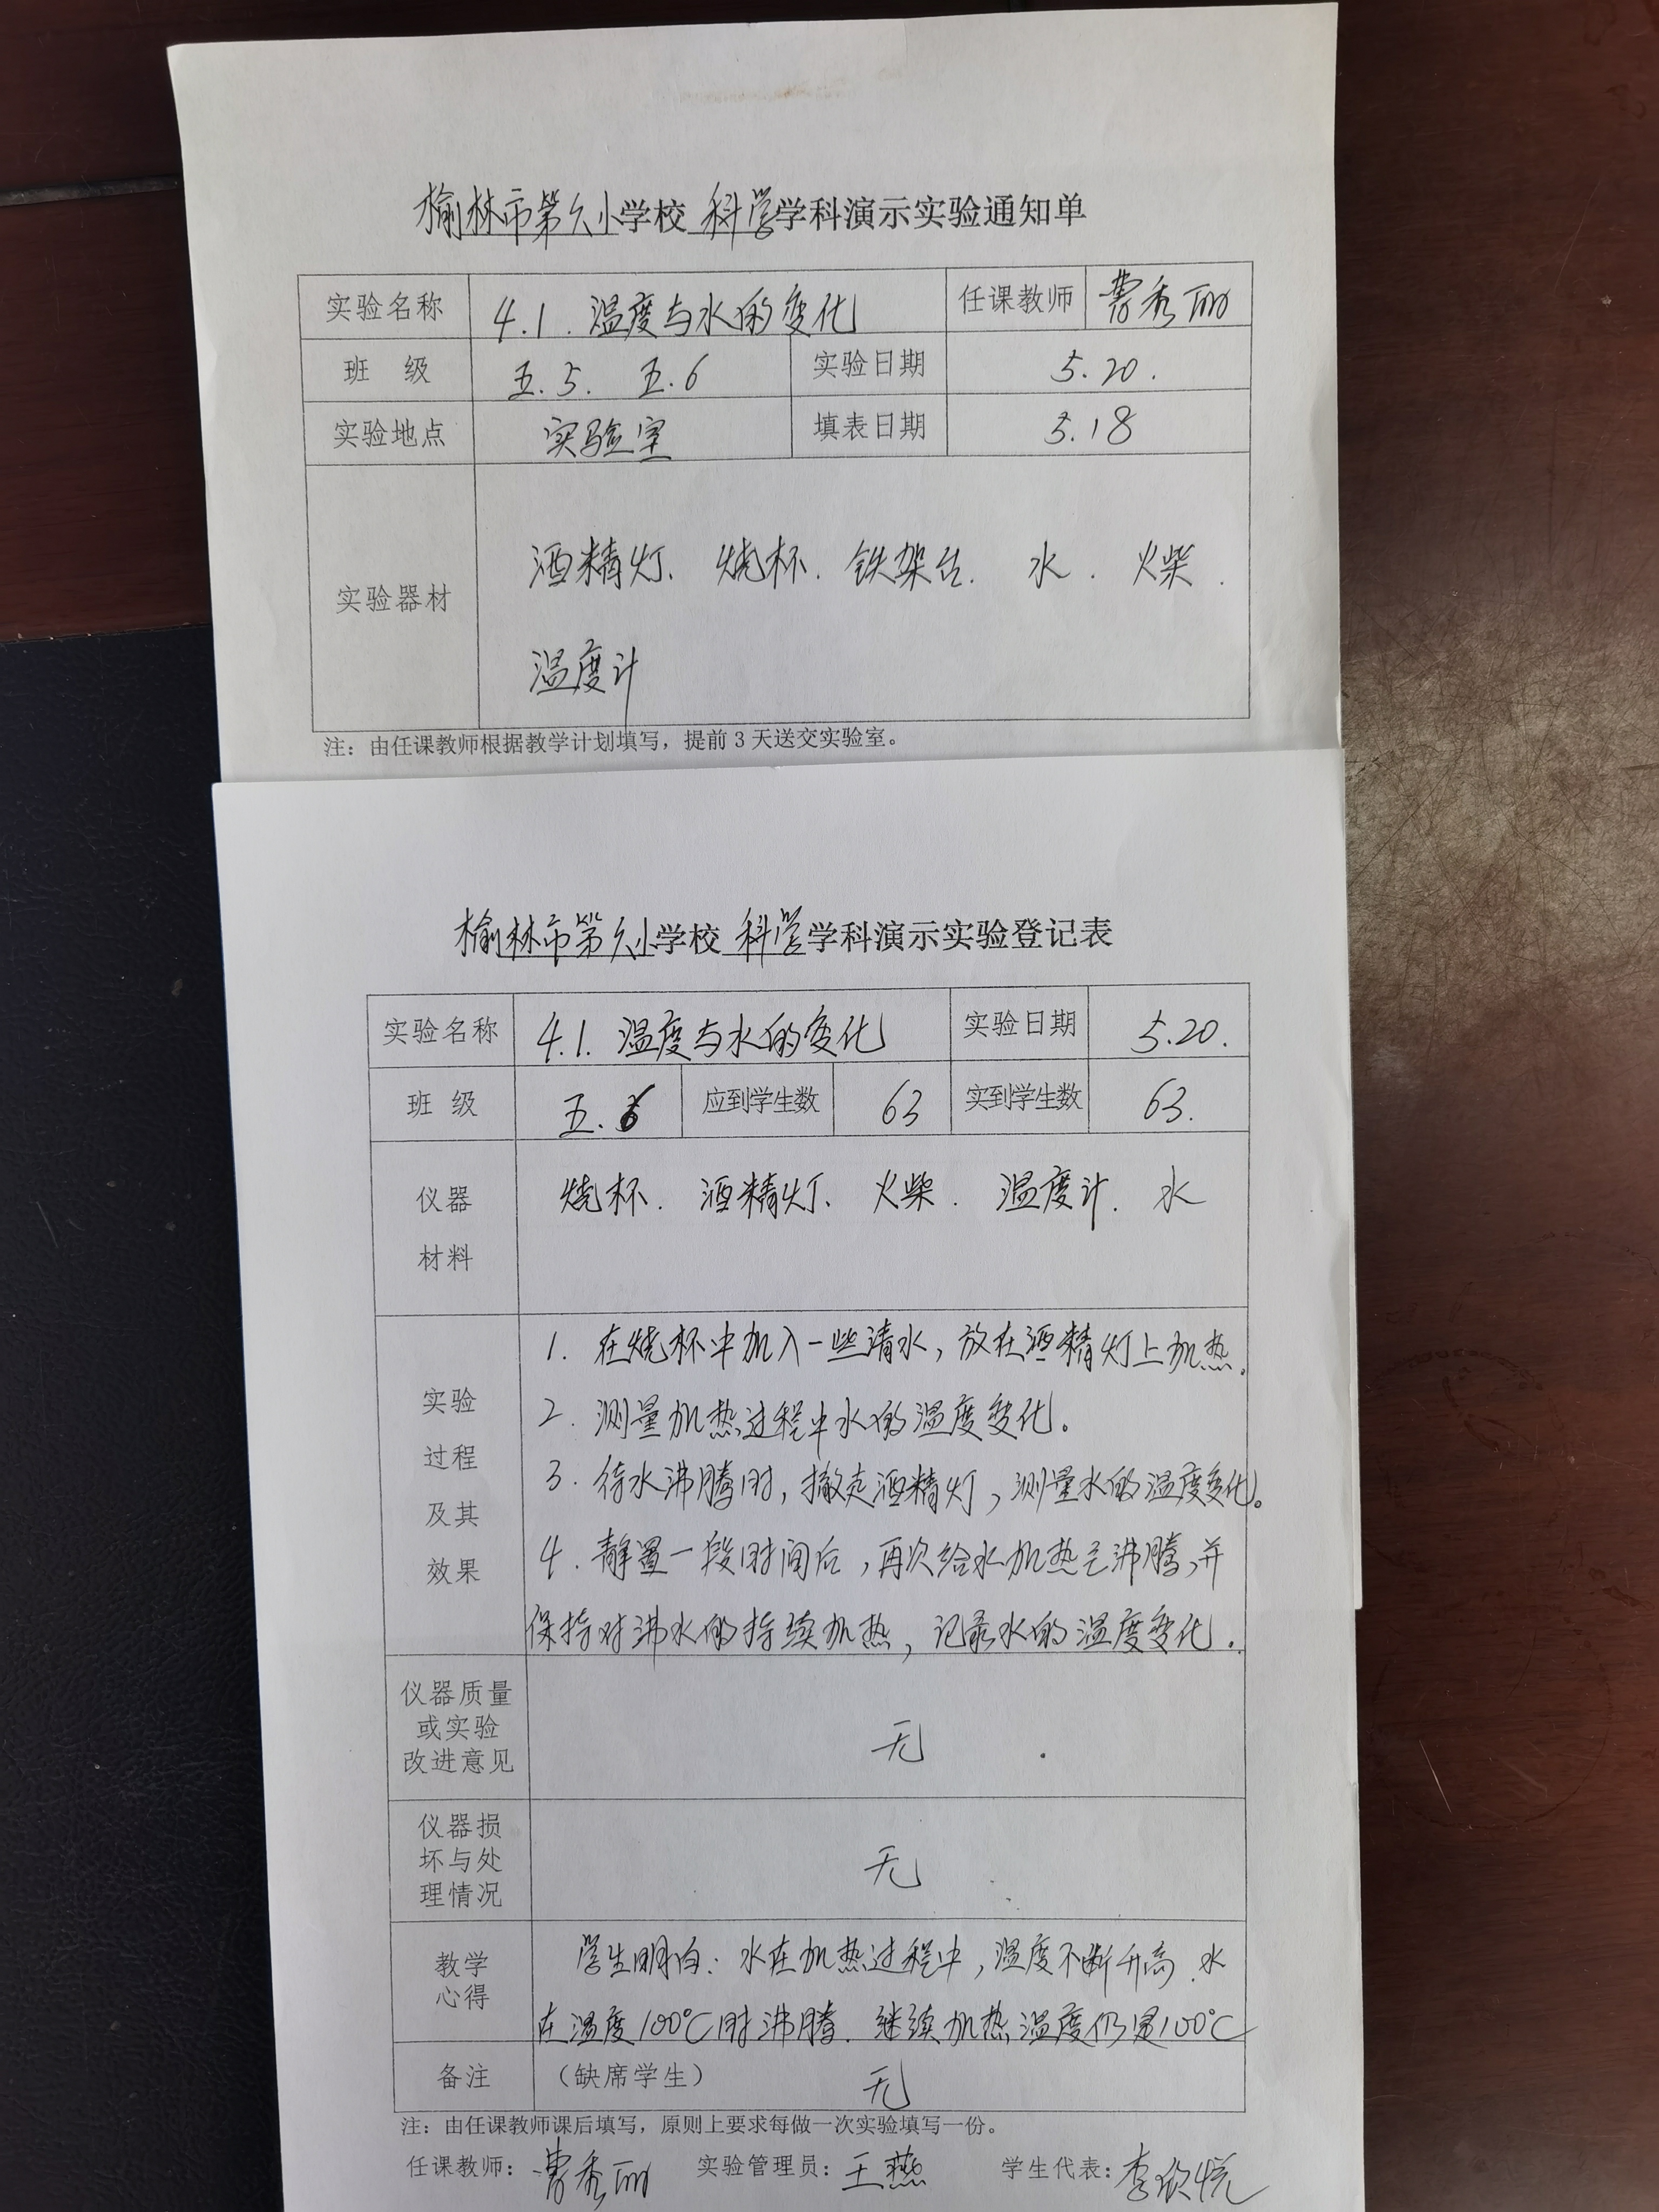 榆林市第六小学校 科学学科演示实验通知单
实验名称 4.1.温度与水的变化 任课教师 曹秀丽
班 级 五.5. 五.6 实验日期 5.20.
实验地点 实验室 填表日期 5.18
酒精灯、烧杯.铁架台. 水. 火柴.
实验器材
温度计
注：由任课教师根据教学计划填写，提前3天送交实验室。
榆林市第六小学校 科学学科演示实验登记表
实验名称 4.1.温度与水的变化 实验日期 5.20.
班 级 五.6 应到学生数 63 实到学生数 63.
仪器 烧杯. 酒精灯、火柴. 温度计. 水
材料
1. 在烧杯中加入一些清水，放在酒精灯上加热.
实验
2. 测量加热过程中水的温度变化。
过程
3. 待水沸腾时，撤走酒精灯，测量水的温度变化。
及其
4. 静置一段时间后，再次给水加热至沸腾，并
效果
保持对沸水的持续加热，记录水的温度变化.
仪器质量
或实验 无
改进意见
仪器损
坏与处 无
理情况
教学 学生明白：水在加热过程中，温度不断升高.水
心得 在温度100℃时沸腾.继续加热温度仍是100℃
备注 （缺席学生） 无
注：由任课教师课后填写，原则上要求每做一次实验填写一份。
任课教师：曹秀丽 实验管理员：王燕 学生代表：李欣悦